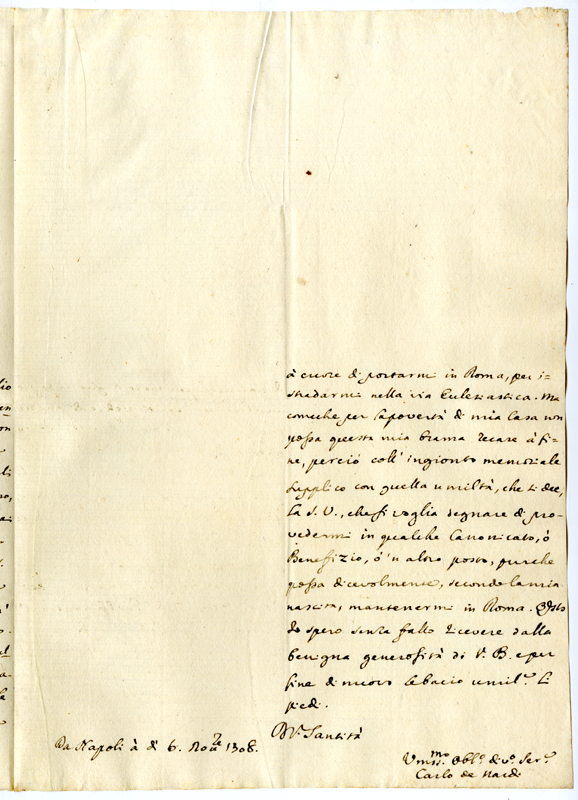 à cuore di portarmi in Roma, per i=
stradarmi nella via Eclesiastica. Ma
comeche per la povertà di mia Casa non
possa questa mia brama recare à fi=
ne, perciò coll' ingionto memoriale
supplico con quella umiltà, che si dee,
la S. V., che si voglia degnare di pro=
vedermi in qualche Canonicato, ò
Beneffizio, ò 'n altro posto, purche
possa dicevolmente, secondo la mia
nascita, mantenermi in Roma.
do spero senza fallo ricevere dalla
benigna generosità di V. B. e per
fine di nuovo le bacio umil.e li
piedi.
Di V. Santità
Da Napoli à dì 6. 1708.
Vmiss.mo Obb.o div.o Ser.e
Carlo de Nardo